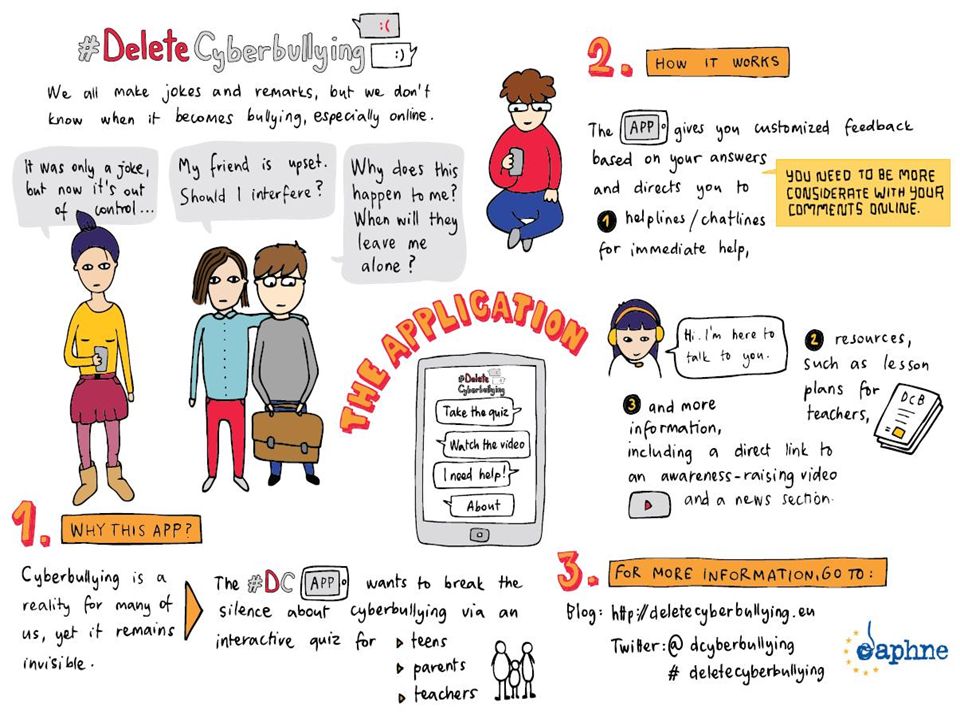 #DeleteCyberbullying
:(
:)
We all make jokes and remarks, but we don't
know when it becomes bullying, especially online.
It was only a joke,
but now it's out
of control...
My friend is upset.
Should I interfere?
Why does this
happen to me?
When will they
leave me
alone?
THE APPLICATION
#Delete
Cyberbullying
Take the quiz
Watch the video
I need help!
About
1. WHY THIS APP?
Cyberbullying is a
reality for many of
us, yet it remains
invisible.
The #DC APP wants to break the
silence about cyberbullying via an
interactive quiz for
teens
parents
teachers
2. HOW IT WORKS
The APP gives you customized feedback
based on your answers
and directs you to
1 helplines/chatlines
for immediate help,
YOU NEED TO BE MORE
CONSIDERATE WITH YOUR
COMMENTS ONLINE.
Hi. I'm here to
talk to you.
2 resources,
such as lesson
plans for
teachers,
DCB
3 and more
information,
including a direct link to
an awareness-raising video
and a news section.
3. FOR MORE INFORMATION, GO TO:
Blog: http://deletecyberbullying.eu
Twitter: @ dcyberbullying
# deletecyberbullying
daphne